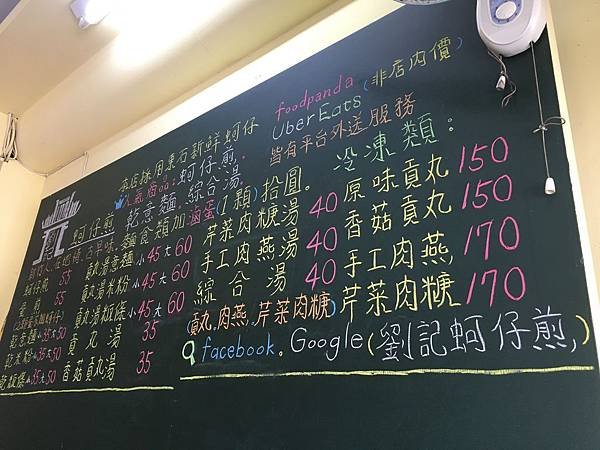 foodpanda
UberEats (非店內價)
皆有平台外送服務
本店採用東石新鮮蚵仔
人氣商品:蚵仔煎.
乾意麵.綜合湯.
麵食類加滷蛋(1顆)拾圓。
冷凍類:
蚵仔煎
55
貢丸湯意麵 小45大60
貢丸湯米粉 小45大60
貢丸湯粄條 小45大60
乾意麵小35大50 貢丸湯 35
乾米粉小35大50 香菇貢丸湯 35
乾粄條小35大50
芹菜肉糖湯 40
手工肉燕湯 40
綜合湯 40
(貢丸.肉燕.芹菜肉糖)
原味貢丸 150
香菇貢丸 150
手工肉燕 170
芹菜肉糖 170
facebook. Google(劉記蚵仔煎,)